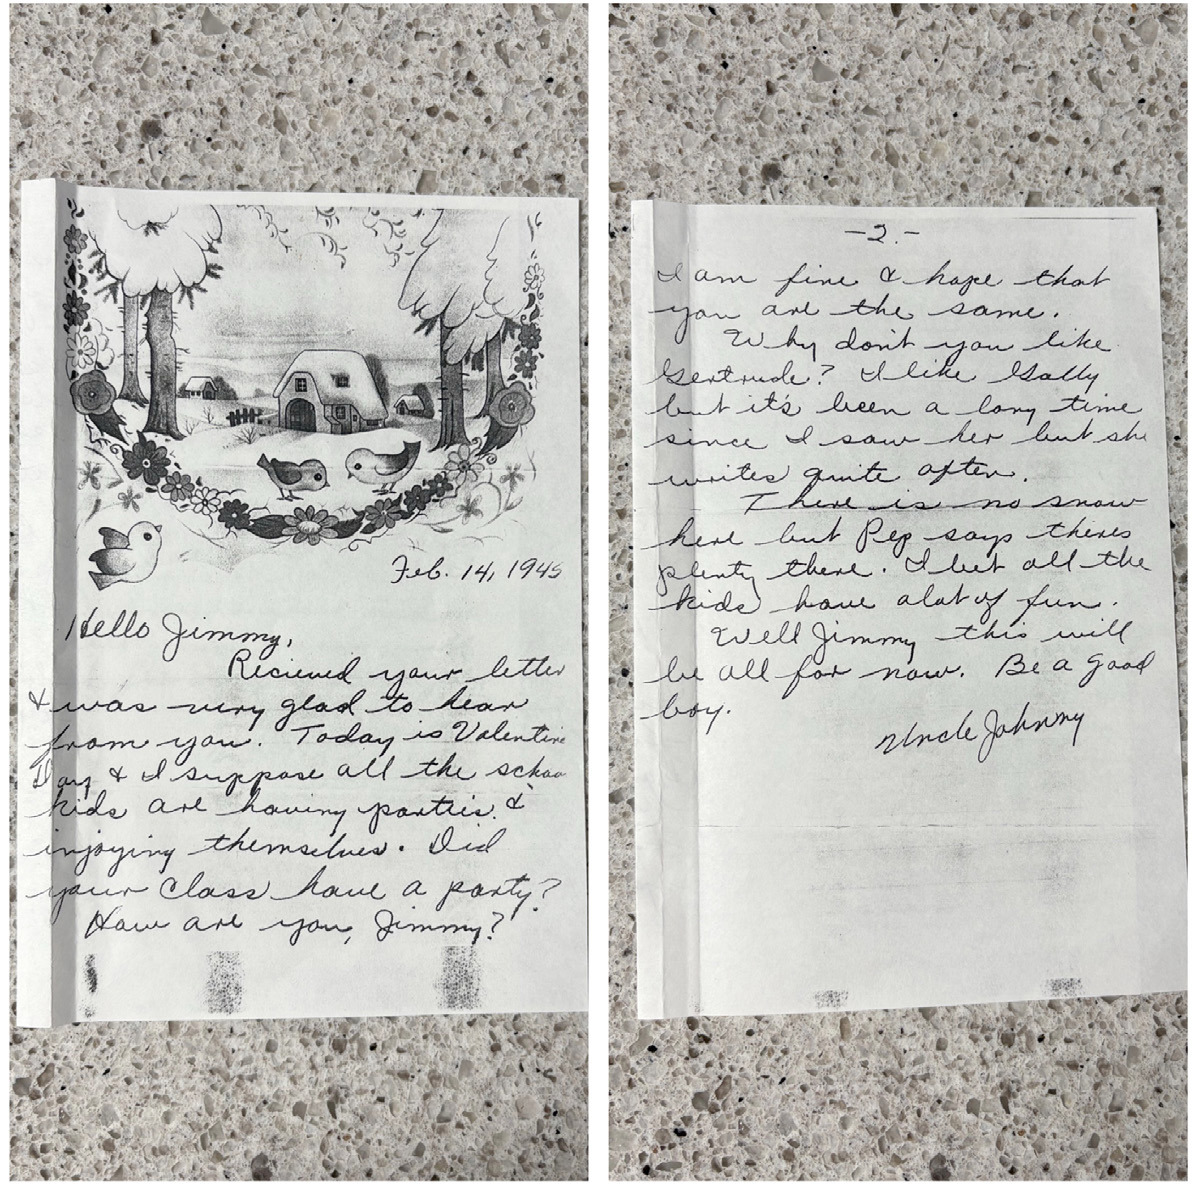 Feb. 14, 1945
Hello Jimmy,
Recieved your letter
& was very glad to hear
from you. Today is Valentine
Day & I suppose all the schoo
kids are having parties &
injoying themselves. Did
your class have a party?
How are you, Jimmy?
-2.-
I am fine & hope that
you are the same.
Why don't you like
Gertrude? I like Gally
but it's been a long time
since I saw her but she
writes quite often.
There is no snow
here but Pep says theres
plenty there. I bet all the
kids have alot of fun.
Well Jimmy this will
be all for now. Be a good
boy.
Uncle Johnny